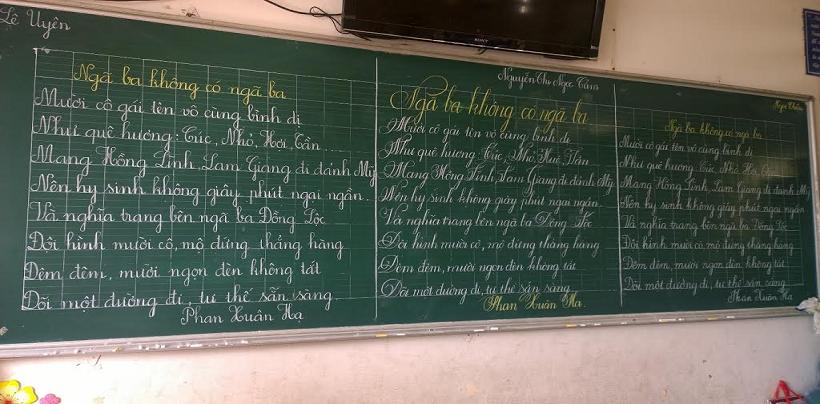 Lê Uyên
Ngã ba không có ngã ba
Mười cô gái tên vô cùng bình dị
Như quê hương: Cúc, Nhỏ, Hợi, Cần...
Mang Hồng Lĩnh, Lam Giang đi đánh Mỹ
Nên hy sinh không giây phút ngại ngần.
Và nghĩa trang bên ngã ba Đồng Lộc
Đội hình mười cô, mộ đứng thẳng hàng
Đêm đêm, mười ngọn đèn không tắt
Dõi một đường đi, tư thế sẵn sàng.
Phan Xuân Hạ
SONY
Nguyễn Thị Ngọc Tâm
Ngã ba không có ngã ba
Mười cô gái tên vô cùng bình dị
Như quê hương: Cúc, Nhỏ,
Mang Hồng Lĩnh, Lam Giang đi đánh Mỹ
Nên hy sinh không giây phút ngại ngần
Và nghĩa trang bên ngã ba Đồng Lộc
Đội hình mười cô, mộ đứng thẳng hàng
Đêm đêm, mười ngọn đèn không tắt
Dõi một đường đi, tư thế sẵn sàng
Phan Xuân Hạ.
Ngã ba không có ngã ba
Mười cô gái tên vô cùng bình dị
Như quê hương: Cúc, Nhỏ,
Mang Hồng Lĩnh, Lam Giang đi đánh Mỹ
Nên hy sinh không giây phút ngại ngần
Và nghĩa trang bên ngã ba Đồng Lộc
Đội hình mười cô, mộ đứng thẳng hàng
Đêm đêm, mười ngọn đèn không tắt
Dõi một đường đi, tư thế sẵn sàng
Phan Xuân Hạ